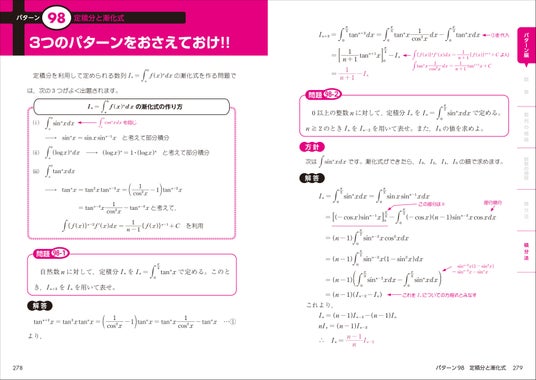 パターン 98 定積分と漸化式
3つのパターンをおさえておけ!!
定積分を利用して定められる数列 Iₙ=∫f(x)ⁿdx の漸化式を作る問題で
は，次の3つがよく出題されます．
Iₙ=∫f(x)ⁿdx の漸化式の作り方
(i) ∫sinⁿxdx
→ sinⁿx=sinx sinⁿ⁻¹x と考えて部分積分
(ii) ∫(logx)ⁿdx → (logx)ⁿ=1・(logx)ⁿ と考えて部分積分
(iii) ∫tanⁿxdx
→ tanⁿx=tan²x tanⁿ⁻²x=(1/cos²x−1)tanⁿ⁻²x
=tanⁿ⁻²x 1/cos²x−tanⁿ⁻²x と考えて，
∫{f(x)}ⁿ⁻²f′(x)dx=1/(n−1){f(x)}ⁿ⁻¹+C を利用
問題 98-1
自然数 n に対して，定積分 Iₙ を Iₙ=∫₀^(π/4) tanⁿx で定める．このと
き，Iₙ₊₂ を Iₙ を用いて表せ．
解答
tanⁿ⁺²x=tan²x tanⁿx=(1/cos²x−1)tanⁿx=tanⁿx 1/cos²x−tanⁿx …①
より，
278
Iₙ₊₂=∫₀^(π/4) tanⁿ⁺²xdx=∫₀^(π/4) tanⁿx 1/cos²x dx−∫₀^(π/4) tanⁿxdx
=[1/(n+1) tanⁿ⁺¹x]₀^(π/4)−Iₙ
=1/(n+1)−Iₙ
問題 98-2
0以上の整数 n に対して，定積分 Iₙ を Iₙ=∫₀^(π/2) sinⁿxdx で定める．
n≧2 のとき Iₙ を Iₙ₋₂ を用いて表せ．また，Iₙ の値を求めよ．
方針
次は ∫sinⁿxdx です．漸化式ができたら，I₀，I₁，I₂，I₃ の値で求めます．
解答
Iₙ=∫₀^(π/2) sinⁿxdx=∫₀^(π/2) sinx sinⁿ⁻¹xdx
=[(−cosx)sinⁿ⁻¹x]₀^(π/2)−∫₀^(π/2)(−cosx)(n−1)sinⁿ⁻²x cosxdx
=(n−1)∫₀^(π/2) sinⁿ⁻²x cos²xdx
=(n−1)∫₀^(π/2) sinⁿ⁻²x(1−sin²x)dx
=(n−1)(∫₀^(π/2) sinⁿ⁻²xdx−∫₀^(π/2) sinⁿxdx)
=(n−1)(Iₙ₋₂−Iₙ) これを Iₙ についての方程式とみなす
これより，
Iₙ=(n−1)Iₙ₋₂−(n−1)Iₙ
nIₙ=(n−1)Iₙ₋₂
∴ Iₙ=(n−1)/n Iₙ₋₂
パターン編
積分法
パターン98 定積分と漸化式 279